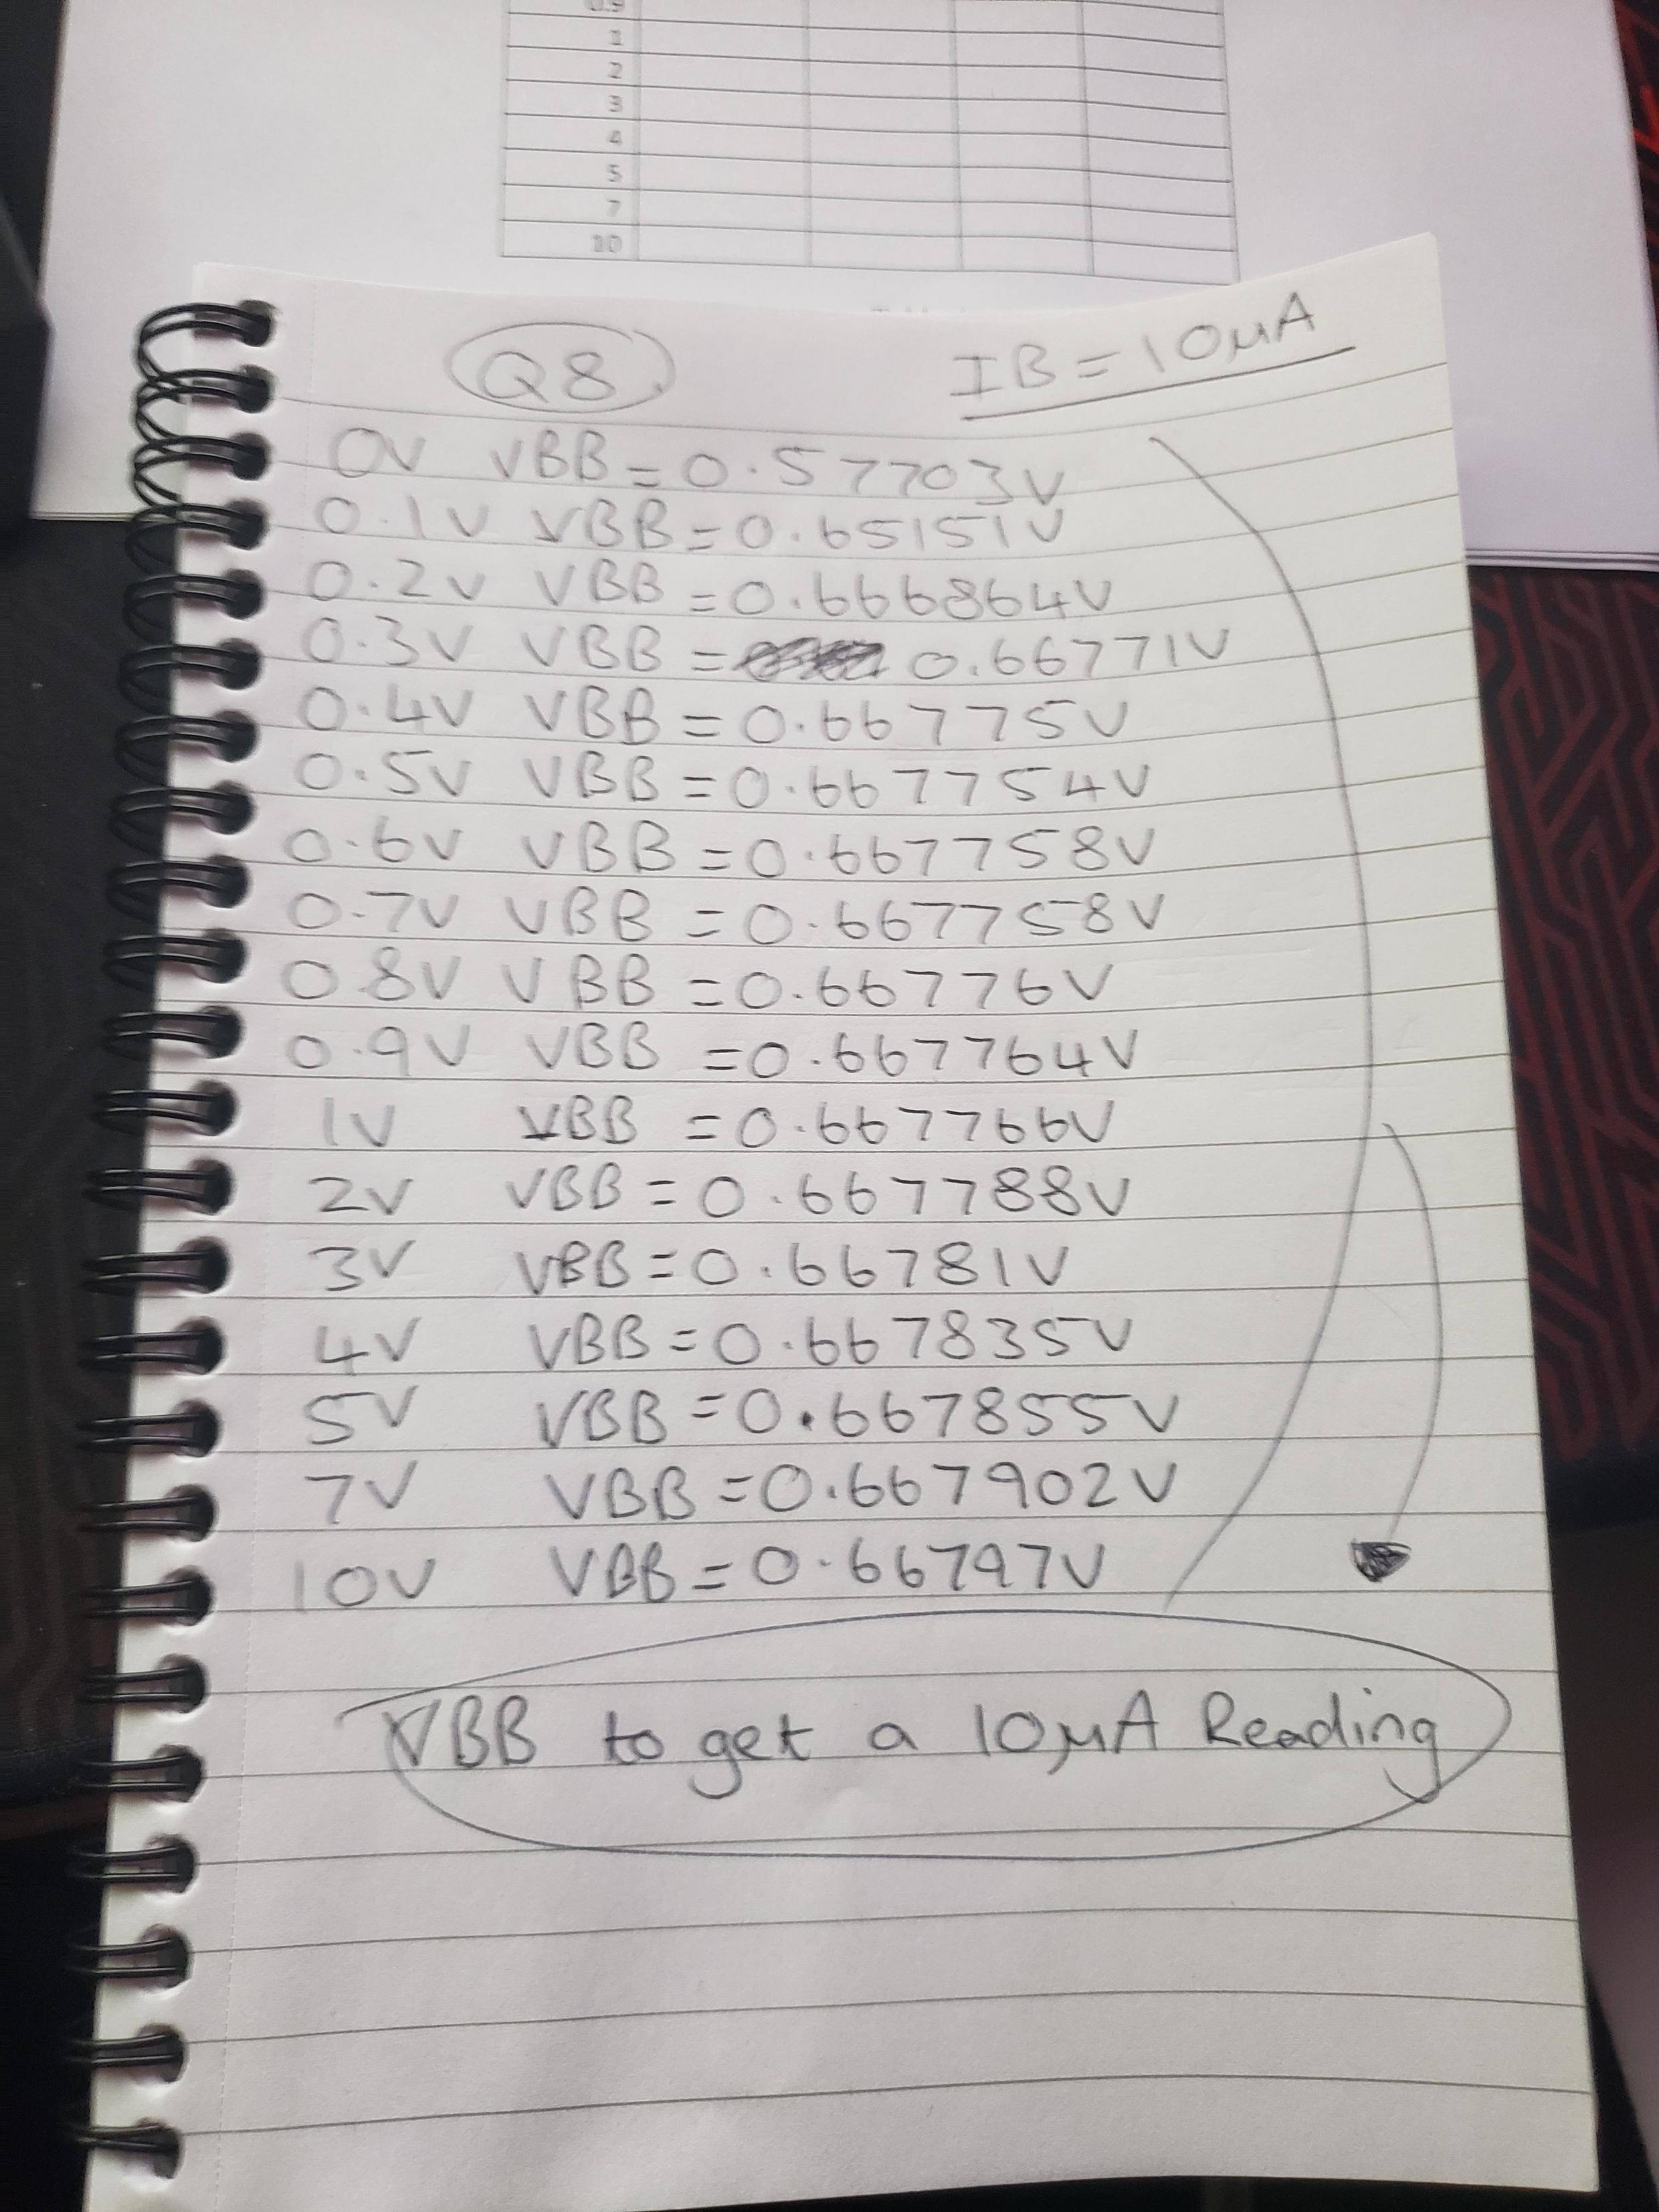 0.9
1
2
3
4
5
7
10
Q8 IB = 10μA
0V VBB = 0.57703V
0.1V VBB = 0.65151V
0.2V VBB = 0.666864V
0.3V VBB = 0.66771V
0.4V VBB = 0.66775V
0.5V VBB = 0.667754V
0.6V VBB = 0.667758V
0.7V VBB = 0.667758V
0.8V VBB = 0.66776V
0.9V VBB = 0.667764V
1V VBB = 0.667766V
2V VBB = 0.667788V
3V VBB = 0.66781V
4V VBB = 0.667835V
5V VBB = 0.667855V
7V VBB = 0.667902V
10V VBB = 0.66797V
VBB to get a 10μA Reading